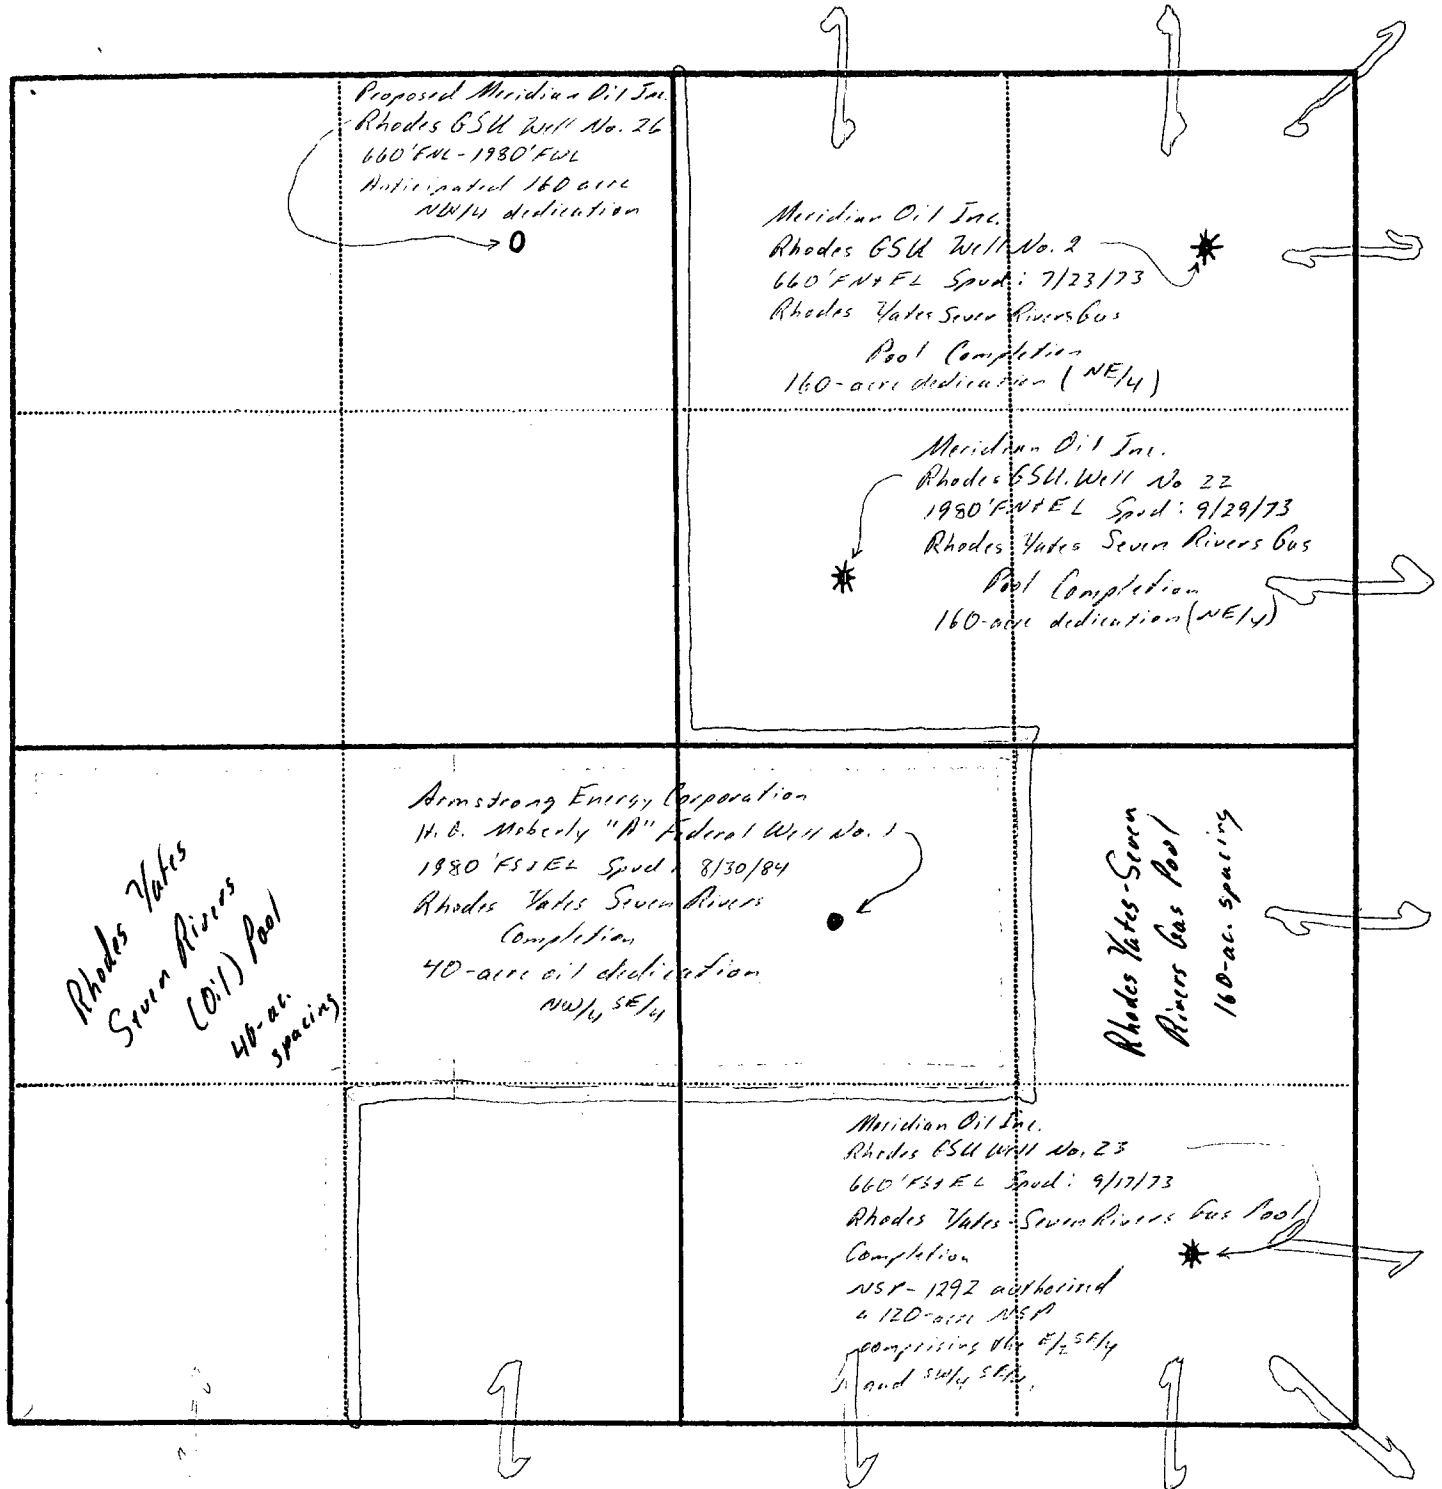 Proposed Meridian Oil Inc.
Rhodes GSU Well No. 26
660'FNL-1980'FWL
Anticipated 160 acre
NW/4 dedication
Meridian Oil Inc.
Rhodes GSU Well No. 2
660'FN&EL Spud: 7/23/73
Rhodes Yates Seven Rivers Gas
Pool Completion
160-acre dedication (NE/4)
Meridian Oil Inc.
Rhodes GSU. Well No 22
1980'FN&EL Spud: 9/29/73
Rhodes Yates Seven Rivers Gas
Pool Completion
160-acre dedication (NE/4)
Armstrong Energy Corporation
Moberly "A" Federal Well No. 1
1980'FS&EL Spud: 8/30/84
Rhodes Yates Seven Rivers
Completion
40-acre oil dedication
NW/4 SE/4
Rhodes Yates
Seven Rivers
(Oil) Pool
40-ac.
spacing
Rhodes Yates-Seven
Rivers Gas Pool
160-ac. spacing
Meridian Oil Inc.
Rhodes GSU Well No. 23
660'FS&EL Spud: 9/17/73
Rhodes Yates-Seven Rivers Gas Pool
Completion
NSP-1292 authorized
a 120-acre NSP
comprising the E/2 SE/4
and SW/4 SE/4.